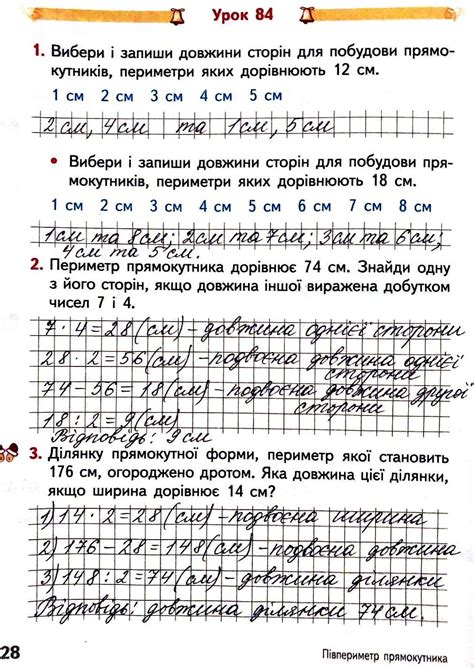 Урок 84
1. Вибери і запиши довжини сторін для побудови прямо-
кутників, периметри яких дорівнюють 12 см.
1 см 2 см 3 см 4 см 5 см
2 см, 4 см та 1 см, 5 см
• Вибери і запиши довжини сторін для побудови пря-
мокутників, периметри яких дорівнюють 18 см.
1 см 2 см 3 см 4 см 5 см 6 см 7 см 8 см
1 см та 8 см; 2 см та 7 см; 3 см та 6 см;
4 см та 5 см.
2. Периметр прямокутника дорівнює 74 см. Знайди одну
з його сторін, якщо довжина іншої виражена добутком
чисел 7 і 4.
7 · 4 = 28 (см) – довжина однієї сторони
28 · 2 = 56 (см) – подвоєна довжина однієї
сторони
74 – 56 = 18 (см) – подвоєна довжина другої
сторони
18 : 2 = 9 (см)
Відповідь: 9 см
3. Ділянку прямокутної форми, периметр якої становить
176 см, огороджено дротом. Яка довжина цієї ділянки,
якщо ширина дорівнює 14 см?
1) 14 · 2 = 28 (см) – подвоєна ширина
2) 176 – 28 = 148 (см) – подвоєна довжина
3) 148 : 2 = 74 (см) – довжина ділянки
Відповідь: довжина ділянки 74 см.
28
Півпериметр прямокутника